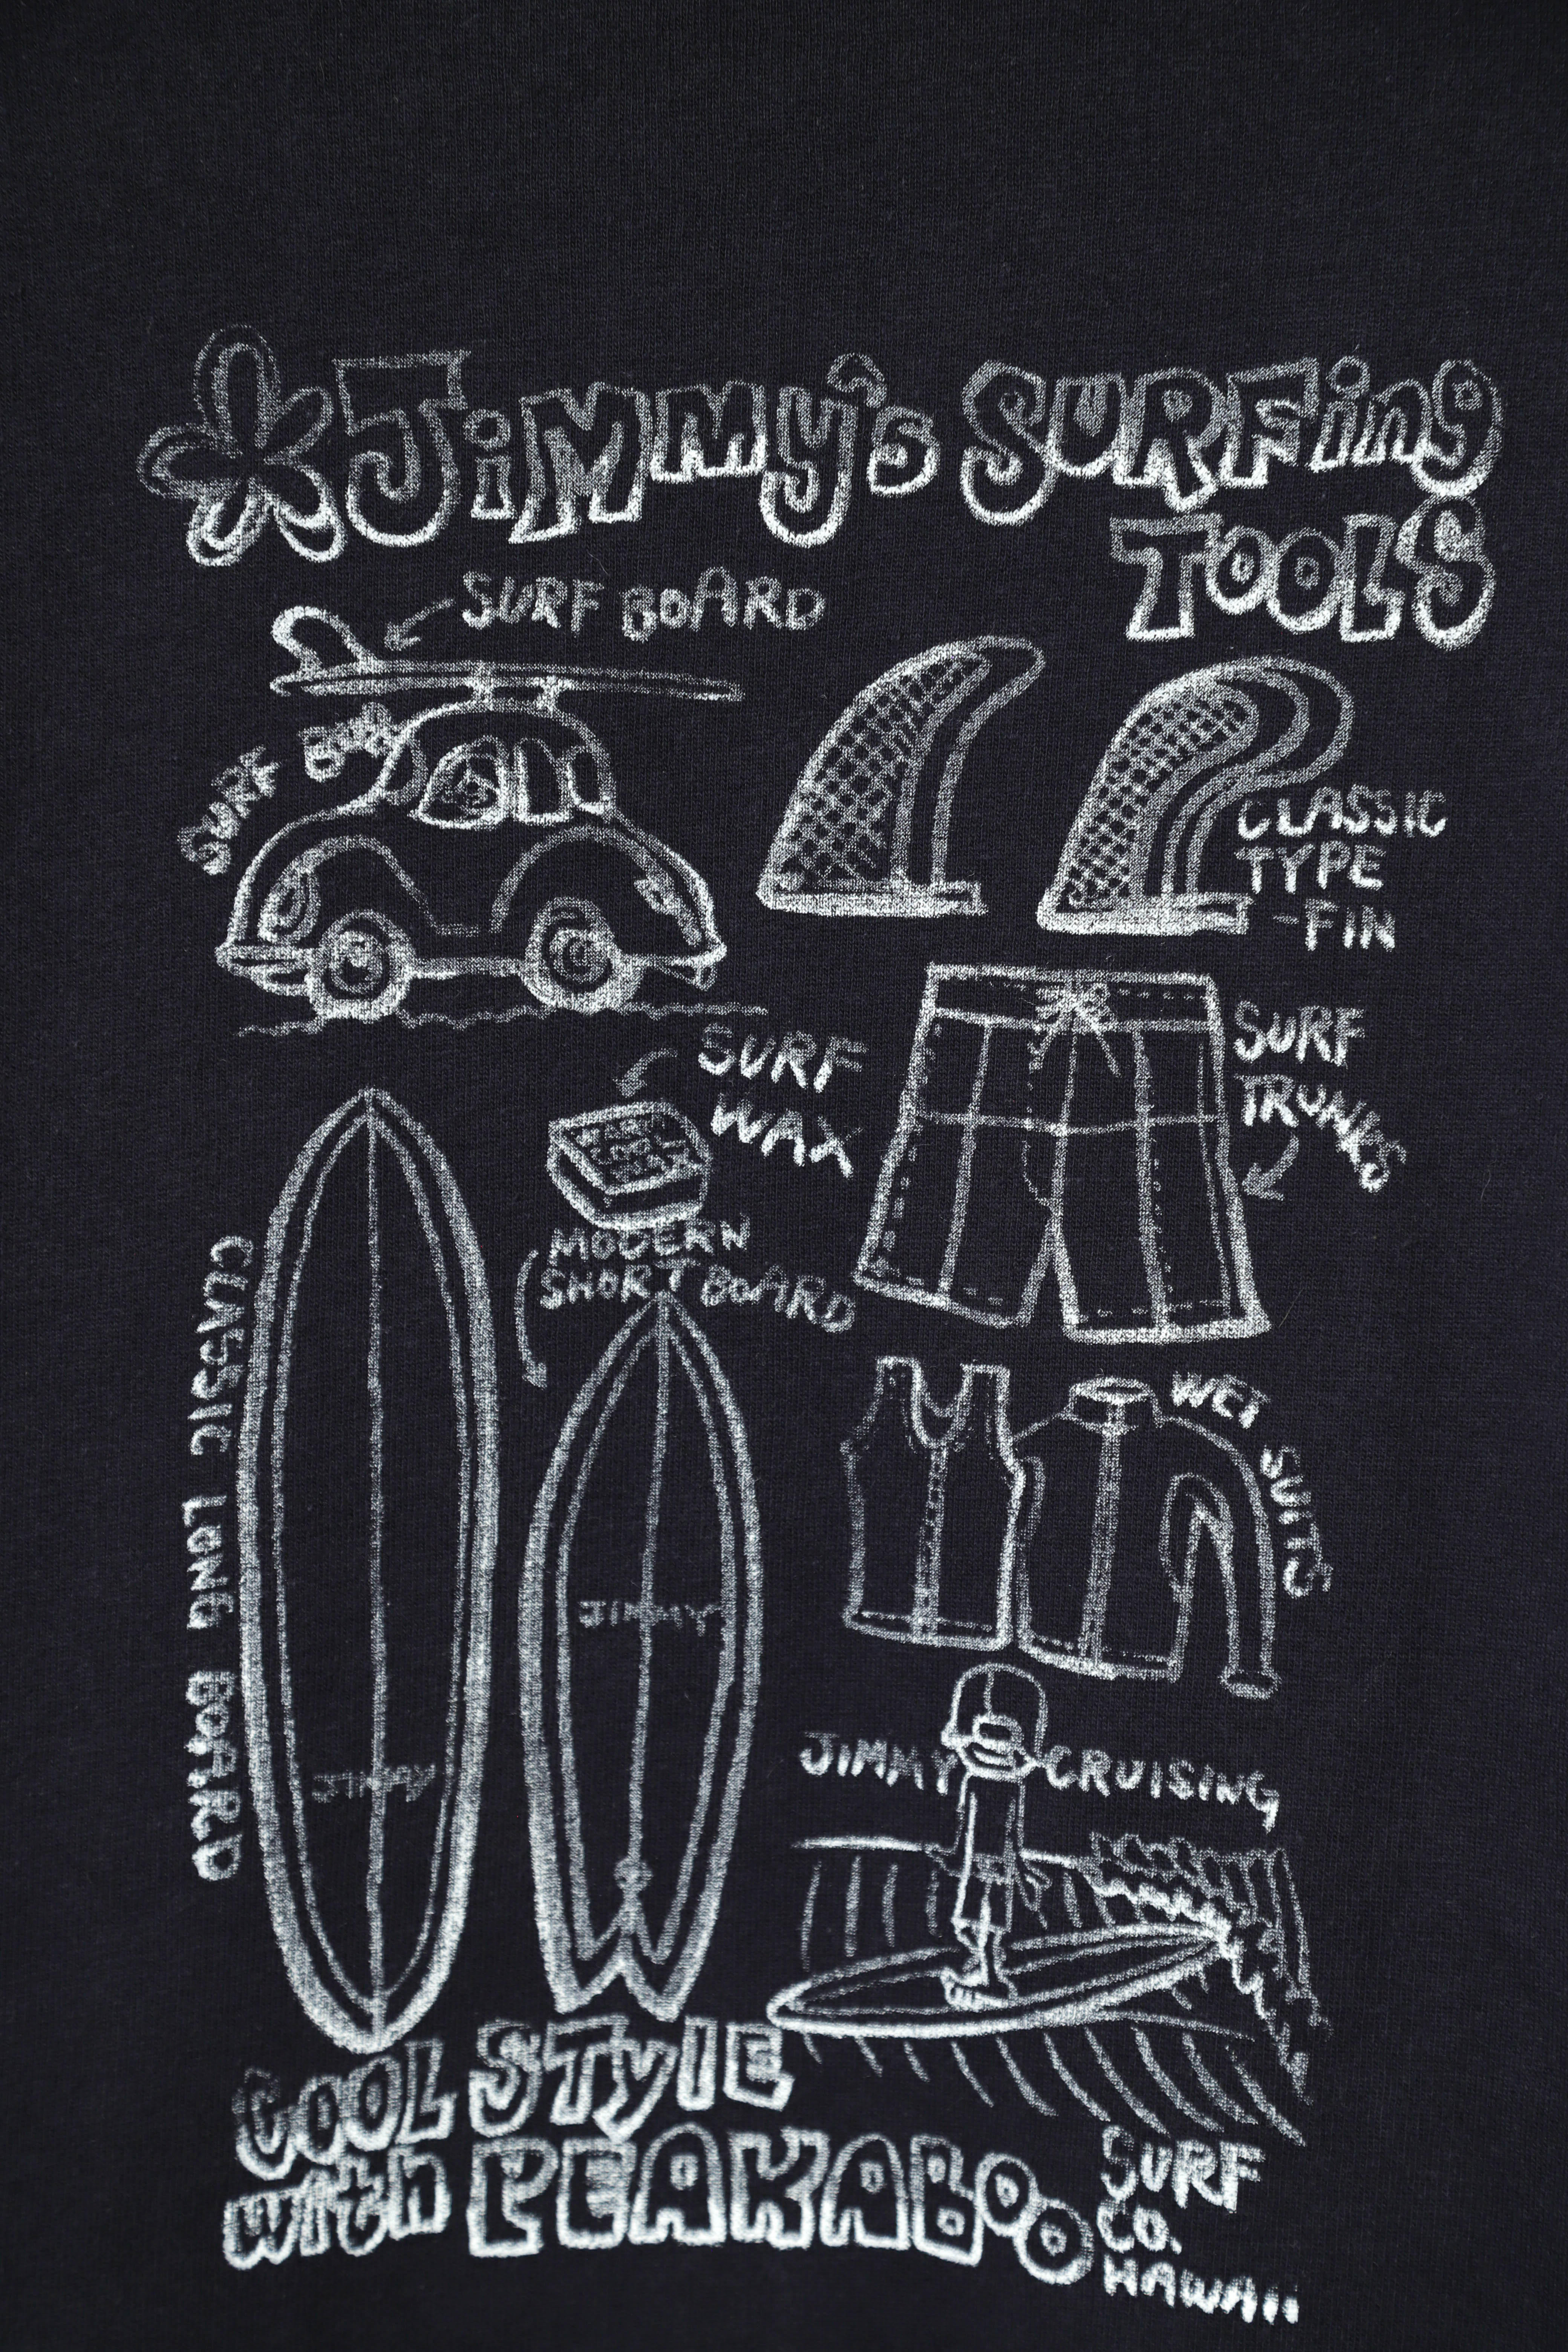 Jimmy's SURFing
TOOLS
SURF BOARD
SURF
CLASSIC
TYPE
-FIN
SURF
WAX
SURF
TRUNKS
MODERN
SHORT BOARD
CLASSIC LONG BOARD
JIMMY
JIMMY
WET
SUITS
JIMMY CRUISING
COOL STYLE
with PEAKABOO
SURF
CO.
HAWAII